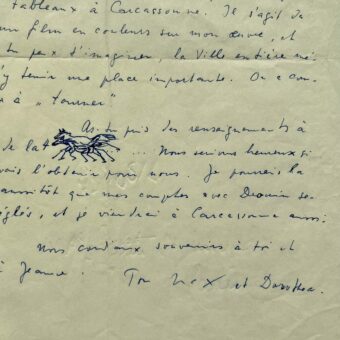 tableaux à Carcassonne. Il s'agit de
un film en couleurs sur mon œuvre, et
tu peux t'imaginer, la Ville entière
'y tenir une place importante. On a com
à „tourner"
As-tu pris des renseignements à
de la 4 ... Nous serions heureux si
vais l'obtenir pour nous. Je pourrais la
aussitôt que mes comptes avec Drouin se
églés, et je viendrai à Carcassonne aussi
Nous cordiaux souvenirs à toi et
à Jeanne. Ton Max et Dorothea.